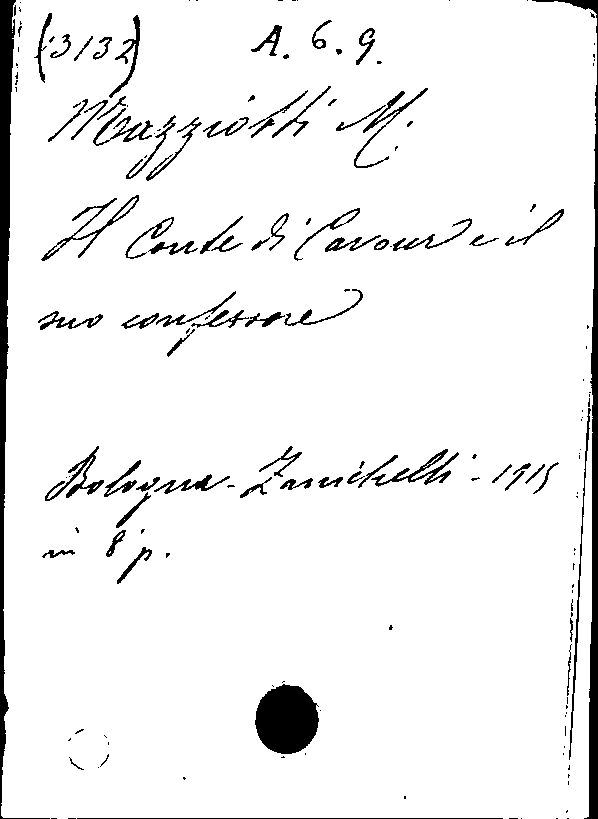 (3132) A. 6. 9.
Mazziotti M.
Il Conte di Cavour e il
suo confessore
Bologna - Zanichelli - 1915
in 8 p.